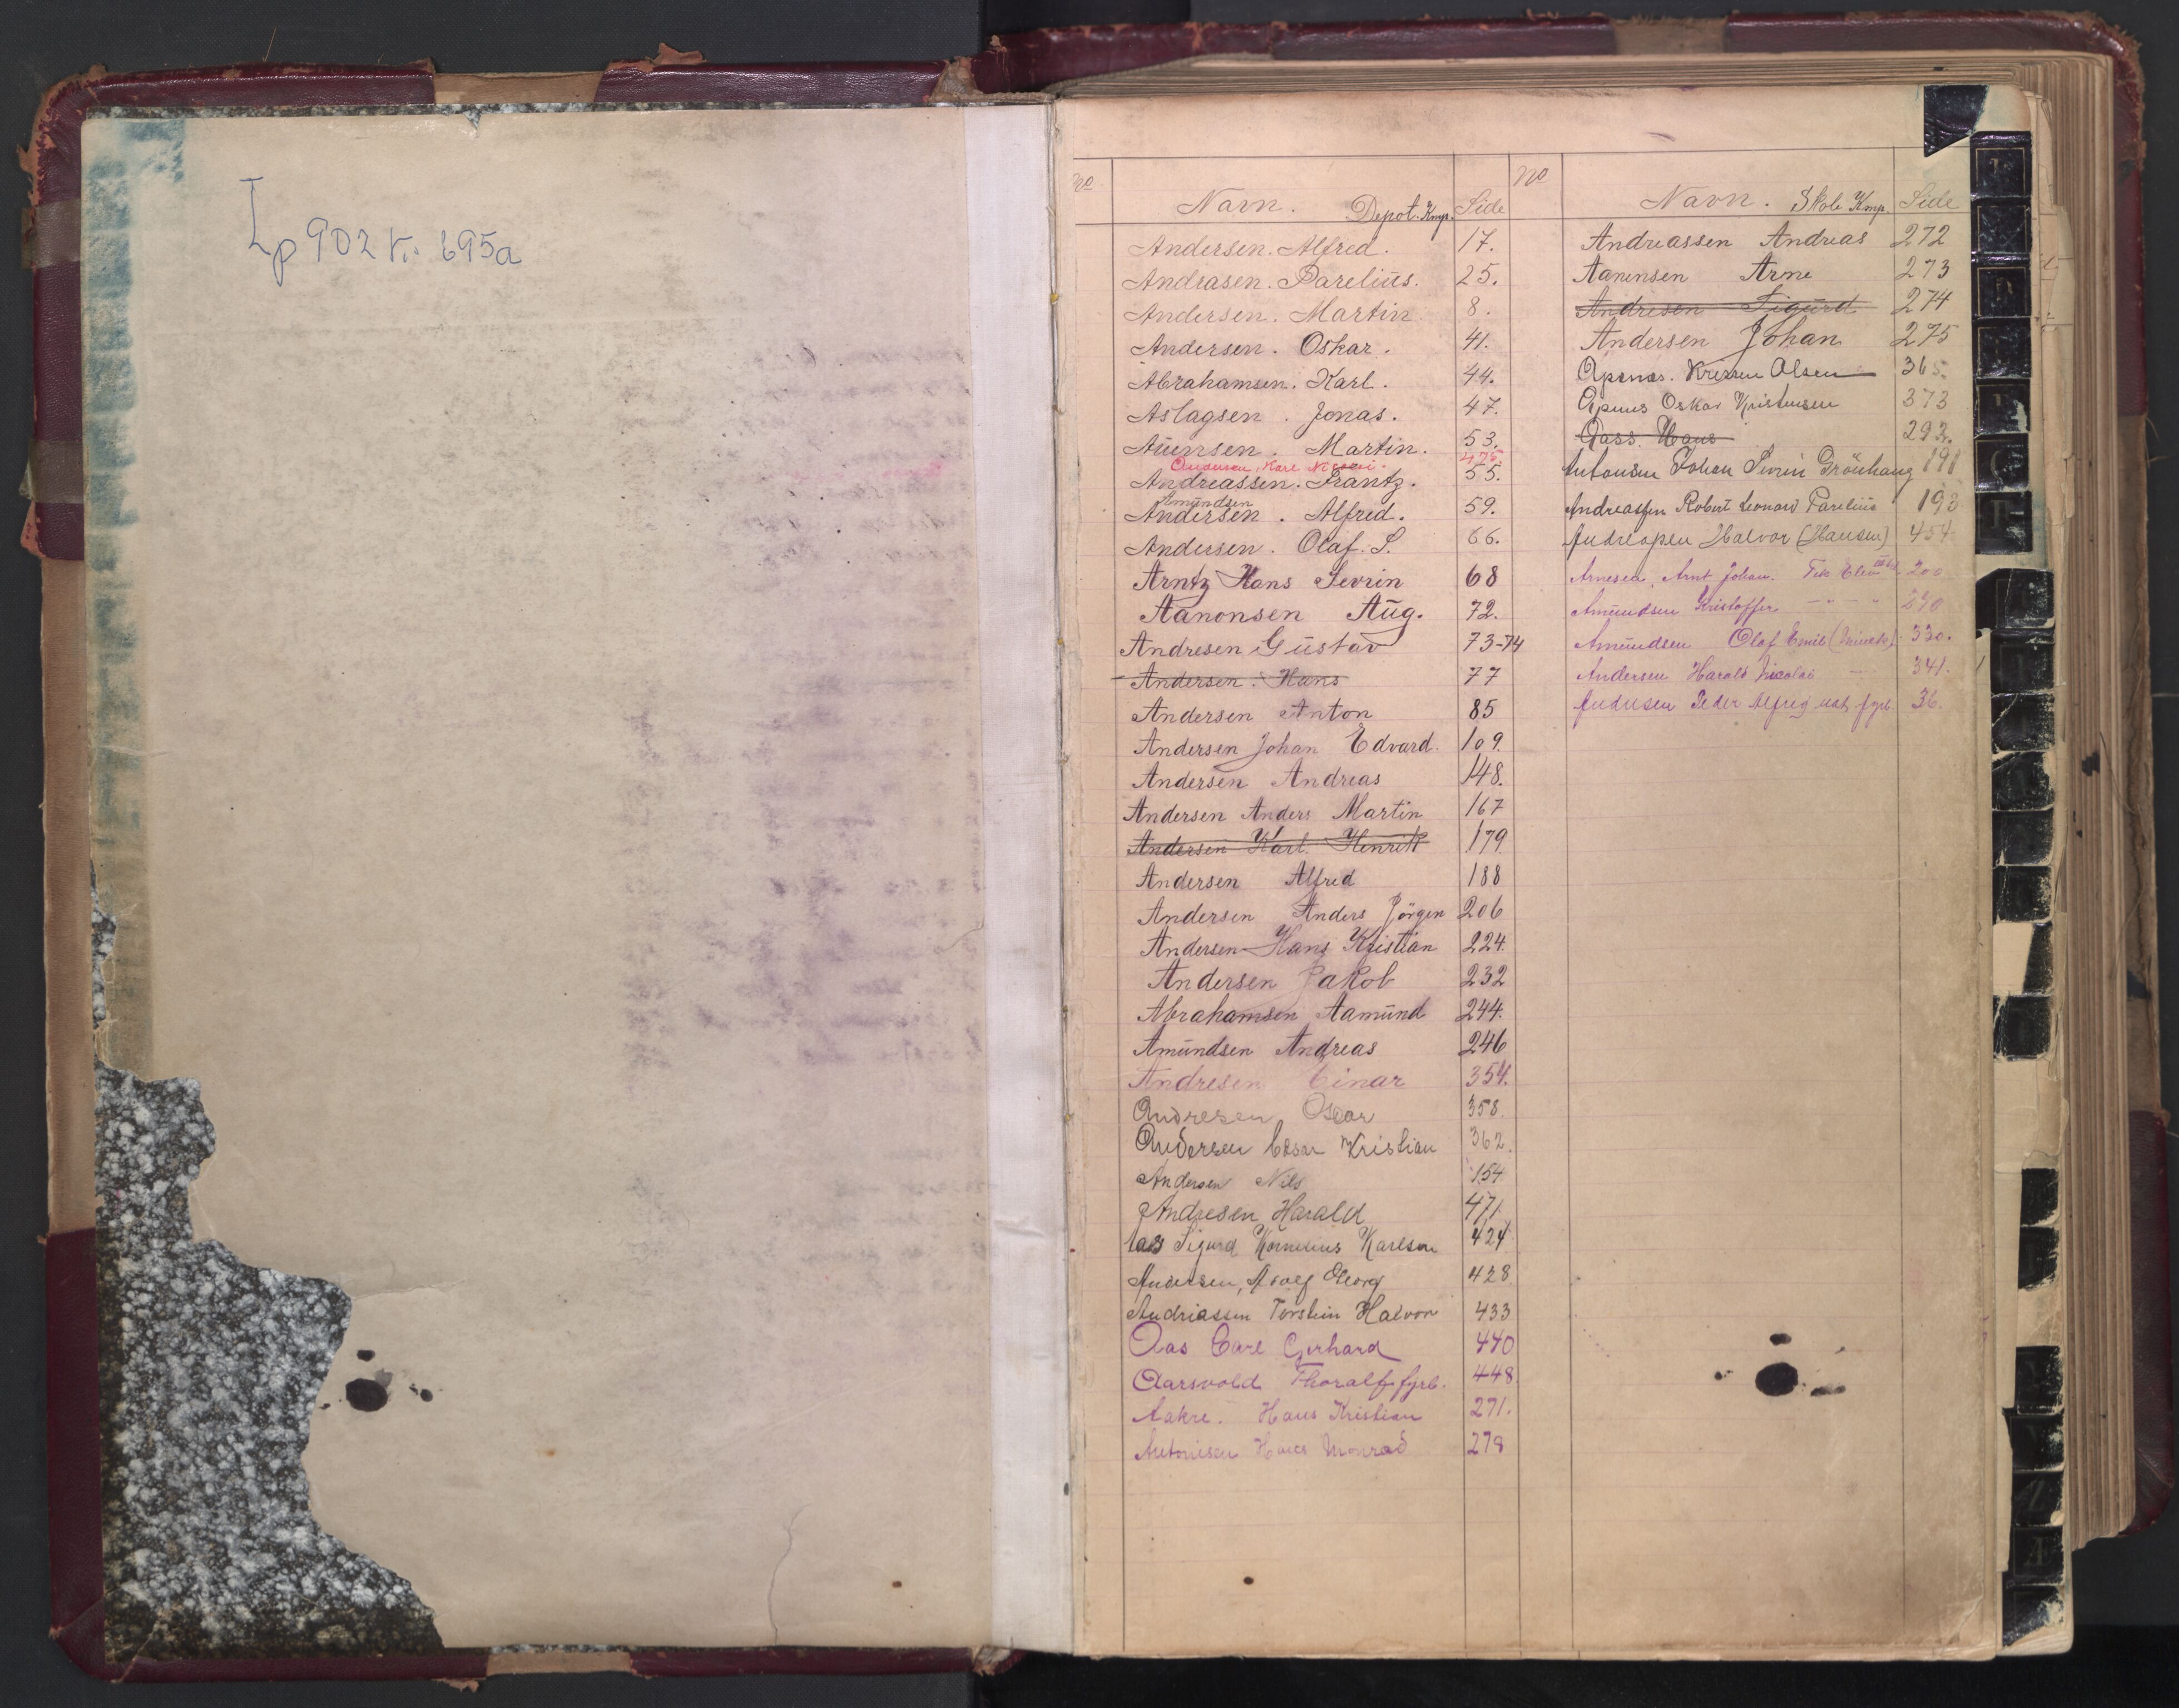 Lp 902 695a
No Navn. Depot. Kmp. Side
Andersen. Alfred. 17.
Andrasen. Parelius. 25.
Andersen. Martin 8.
Andersen. Oskar. 41.
Abrahamsen. Karl. 44.
Aslagsen. Jonas. 47.
Martin. 53.
Andersen, Karl 475
Andreassen. Frantz. 55.
Amundsen
Andersen. Alfred. 59.
Andersen. Olaf. S. 66.
Arntz Hans Sevrin 68
Aanonsen Aug. 72.
Andresen Gustav 73-74
Andersen. Hans 77
Andersen Anton 85
Andersen Johan Edvard. 109.
Andersen Andreas 148.
Andersen Anders Martin 167
Andersen Karl Henrik 179
Andersen Alfred 188
Andersen Anders Jörgen 206
Andersen Hans Kristian 224.
Andersen Jakob 232
Abrahamsen Aamund 244.
Amundsen Andreas 246
Andresen Einar 354.
Andresen Oscar 358.
Andersen Kristian 362.
Andersen Nils 154
Andresen Harald 471.
Aas Sigurd Kornelius Karlsen 424
Andersen, Adolf Georg 428.
Andriassen Torstein Halvor 433
Aas Carl Gerhard 440
Aarsvold Thoralf fyrb. 448.
Aakre. Hans Kristian 271.
Antonisen Hans Monrad 278
No Navn. Skole Kmp. Side
Andreassen Andreas 272
Aanensen Arne 273
Andresen Sigurd 274
Andersen Johan 275
Olsen 365.
Oskar Kristensen 373
Aass. Hans 292.
Antonsen Johan Sevrin Grönhaug 191
Andreassen Robert Leonard Parelius 193
Andreassen Halvor (Hansen) 454
Arnesen, Arnt Johan. 200
Amundsen Kristoffer 240
Amundsen Olaf Emil 330.
Andersen Harald Nicolai 341.
Andersen Peder Alfred fyrb. 36.